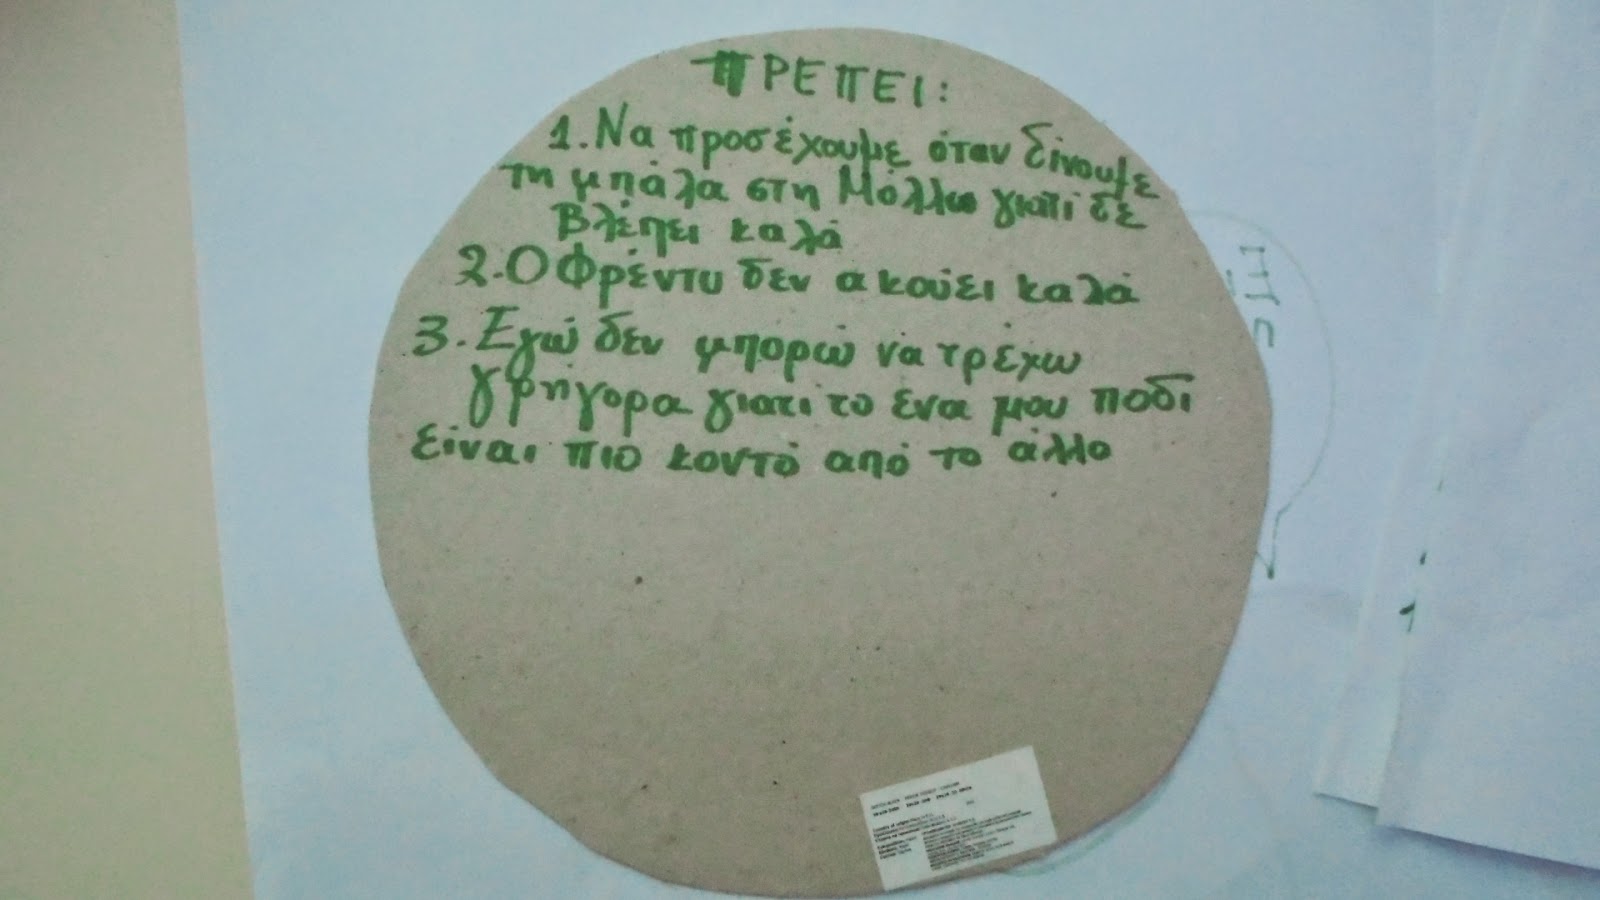 ΠΡΕΠΕΙ:
1. Να προσέχουμε όταν δίνουμε
τη μπάλα στη Μόλλυ γιατί δε
βλέπει καλά
2. Ο Φρέντυ δεν ακούει καλά
3. Εγώ δεν μπορώ να τρέχω
γρήγορα γιατι το ένα μου ποδι
είναι πιο κοντό από το άλλο